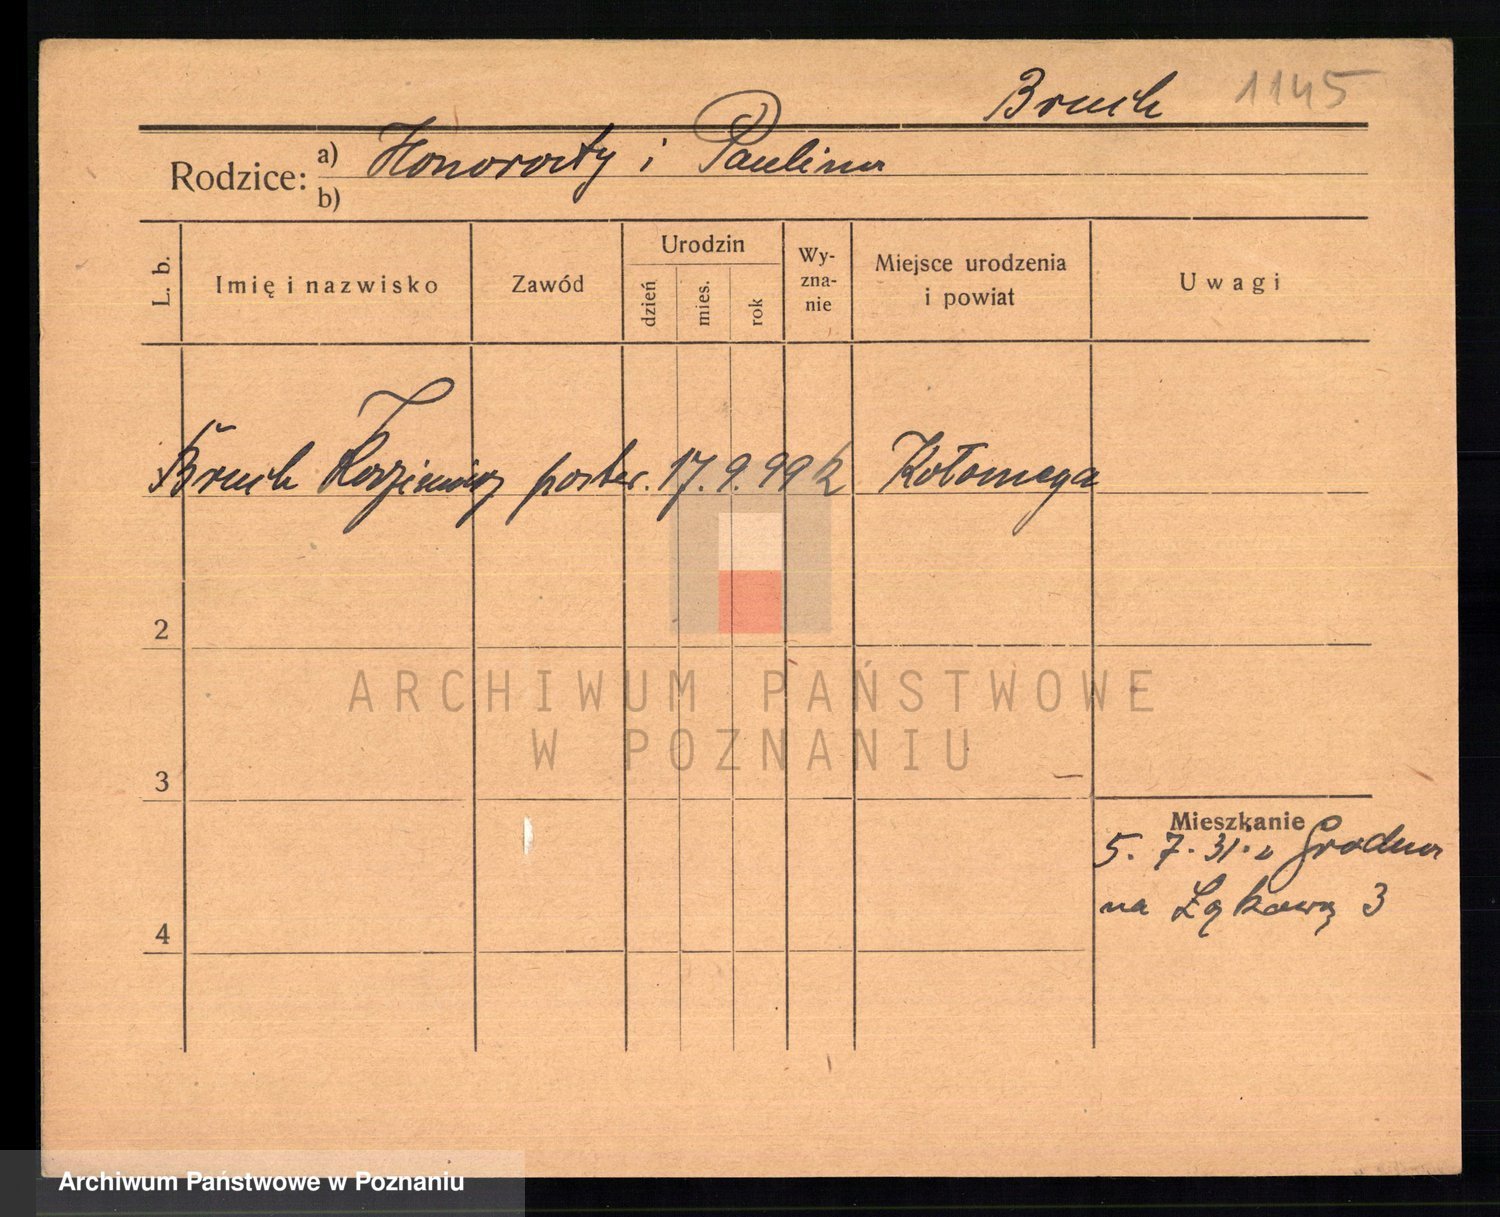 Bruch 1145
Rodzice: a) Honoraty i Paulina
b)
L. b.
Imię i nazwisko
Zawód
Urodzin
dzień
mies.
rok
Wy-
zna-
nie
Miejsce urodzenia
i powiat
Uwagi
Bruch Kazimierz poster. 17. 9. 99 k Kołomyja
2
ARCHIWUM PAŃSTWOWE
W POZNANIU
3
Mieszkanie
5. 7. 31. z Grodna
na Łąkową 3
4
Archiwum Państwowe w Poznaniu